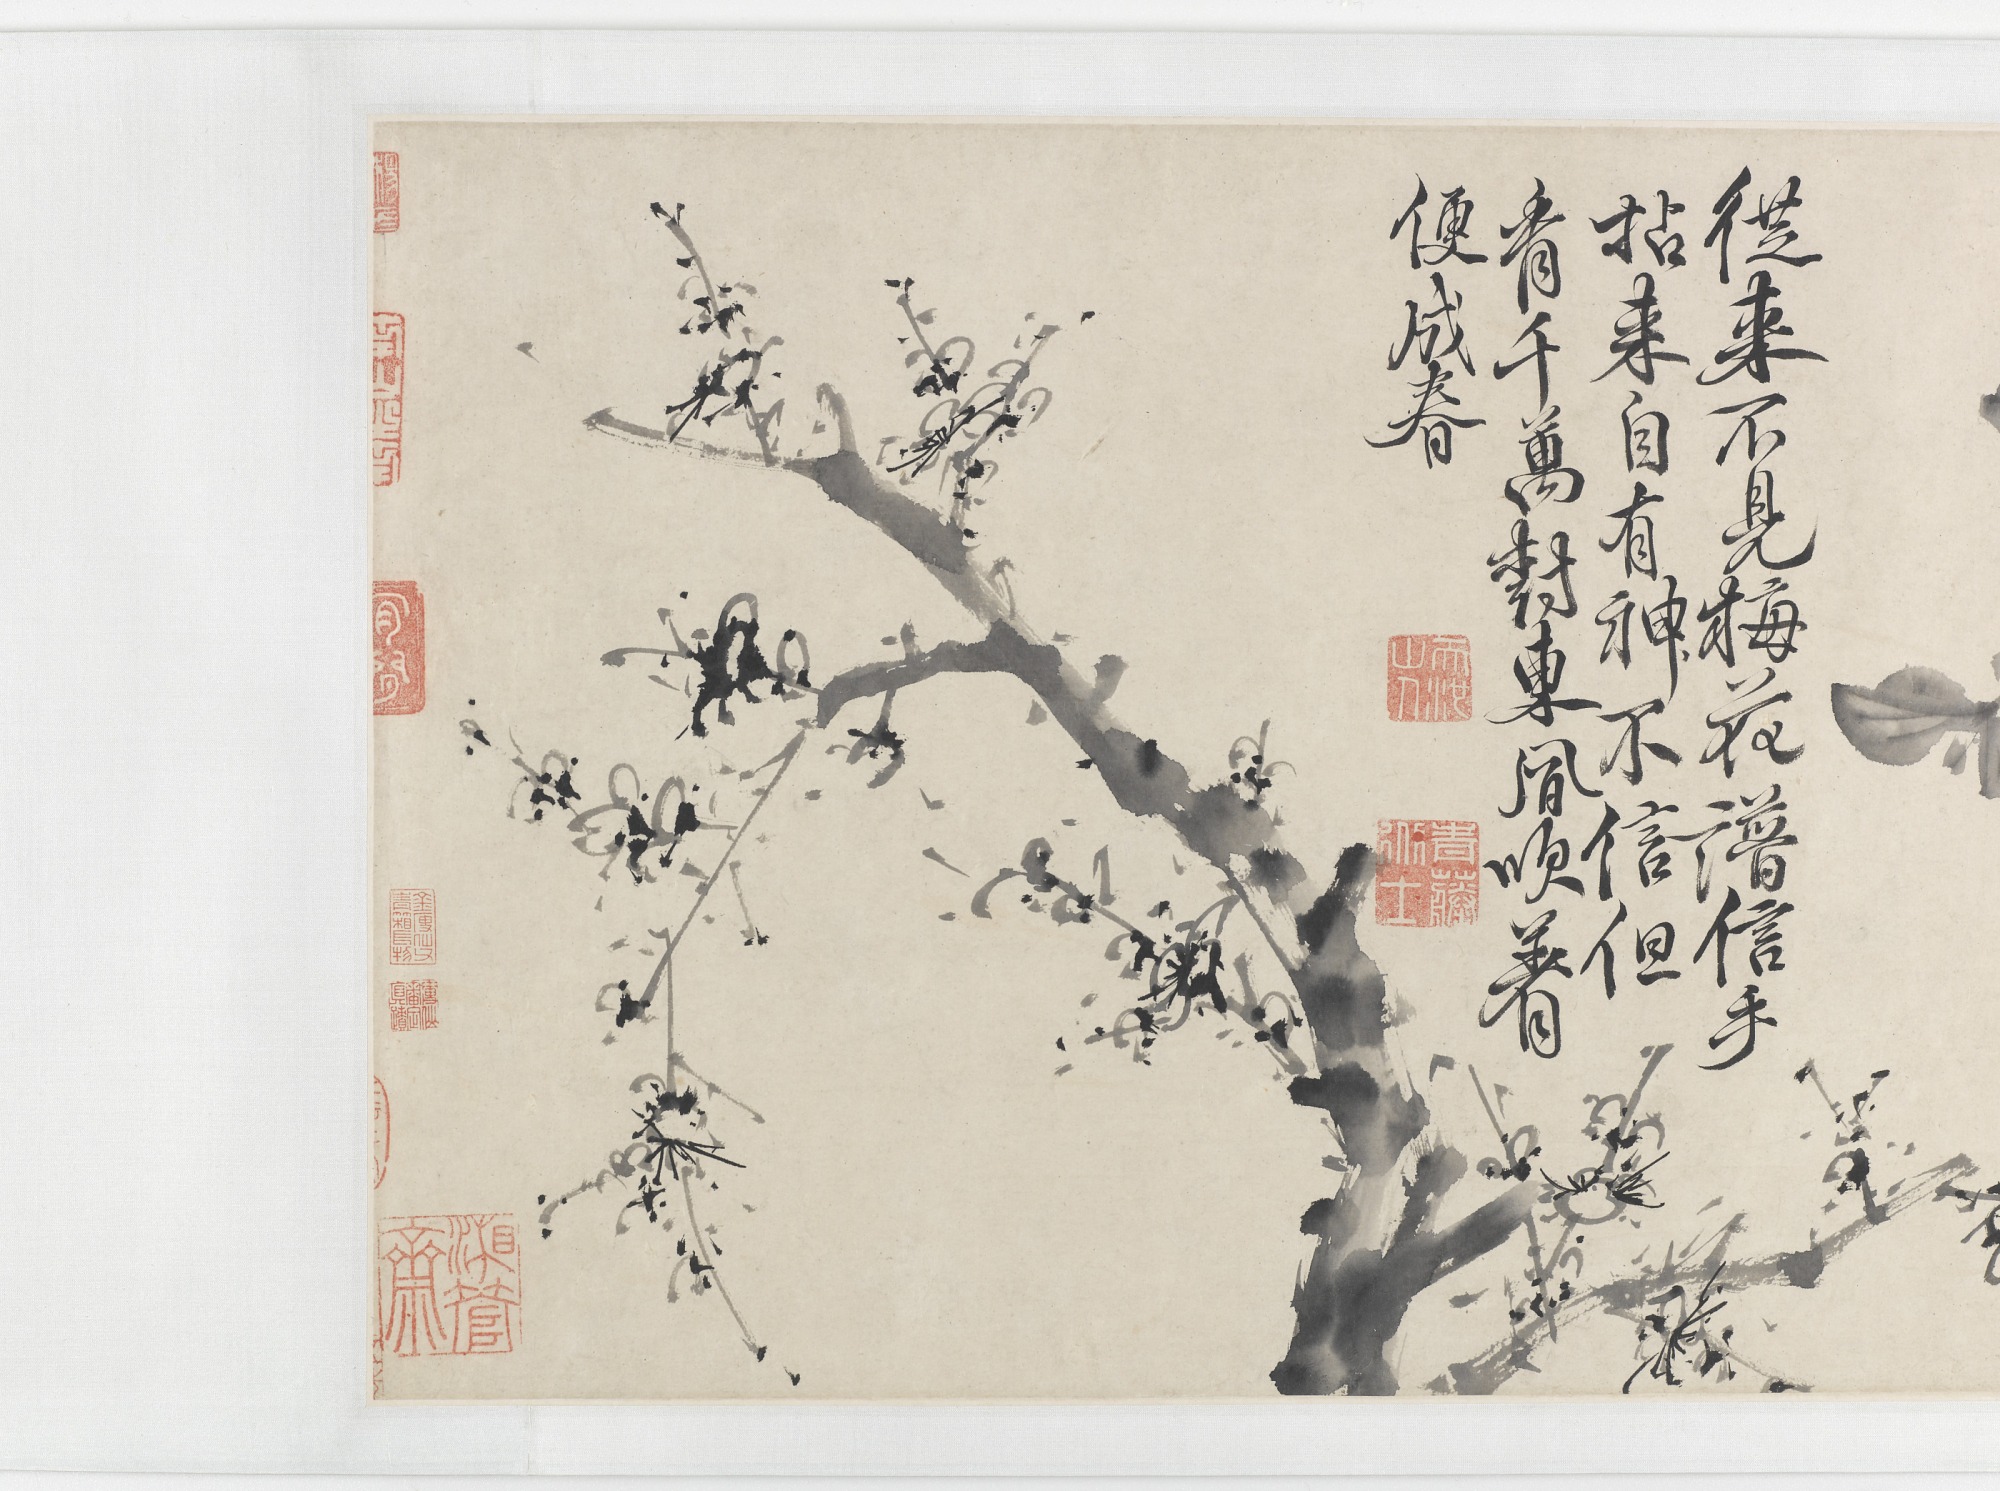 從来不見梅花譜信手
拈来自有神不信但
看千萬樹東風吹着
便成春
天池山人
青藤道士
湘管齋